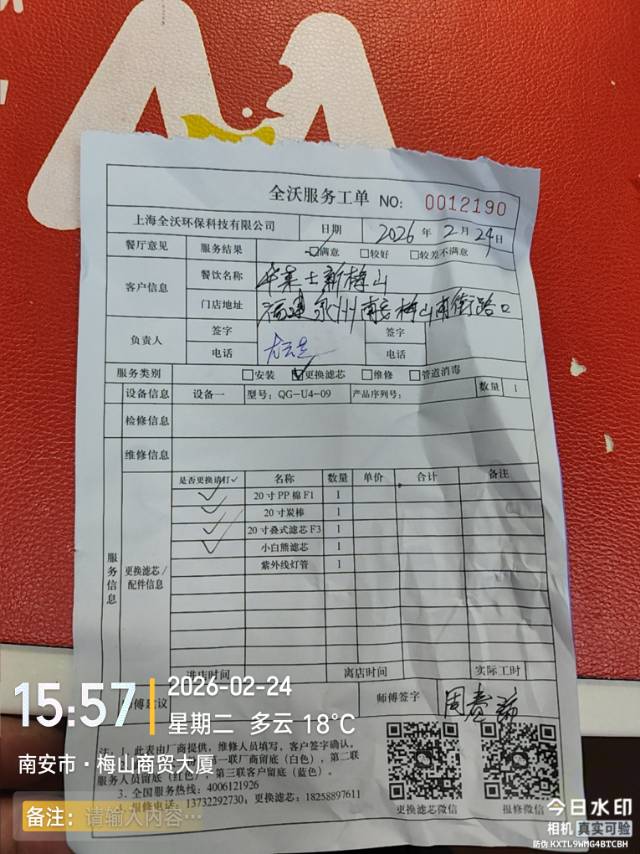 全沃服务工单 NO: 0012190
上海全沃环保科技有限公司 日期 2026 年 2 月 24 日
餐厅意见 服务结果 ☑满意 □较好 □较差不满意
客户信息 餐饮名称 华莱士新梅山
门店地址 福建泉州南安梅山南街路口
负责人 签字 签字
电话 电话
服务类别 □安装 ☑更换滤芯 □维修 □管道消毒
设备信息 设备一 型号: QG-U4-09 产品序列号: 数量 1
检修信息
维修信息
服务信息
更换滤芯/配件信息
是否更换请打✓ 名称 数量 单价 合计 备注
✓ 20寸PP棉F1 1
✓ 20寸炭棒 1
✓ 20寸叠式滤芯F3 1
✓ 小白熊滤芯 1
紫外线灯管 1
进店时间 离店时间 实际工时
师傅建议 师傅签字
注: 1. 此表由厂商提供, 维修人员填写, 客户签字确认。
第一联厂商留底(白色), 第二联
服务人员留底(红色), 第三联客户留底(蓝色)。
3. 全国服务热线: 4006121926
报修电话: 13732292730; 更换滤芯: 18258897611
更换滤芯微信 报修微信
15:57
2026-02-24
星期二 多云 18°C
南安市·梅山商贸大厦
备注: 请输入内容…
今日水印
相机 真实可验
防伪 KXTL9WMG4BTCBH